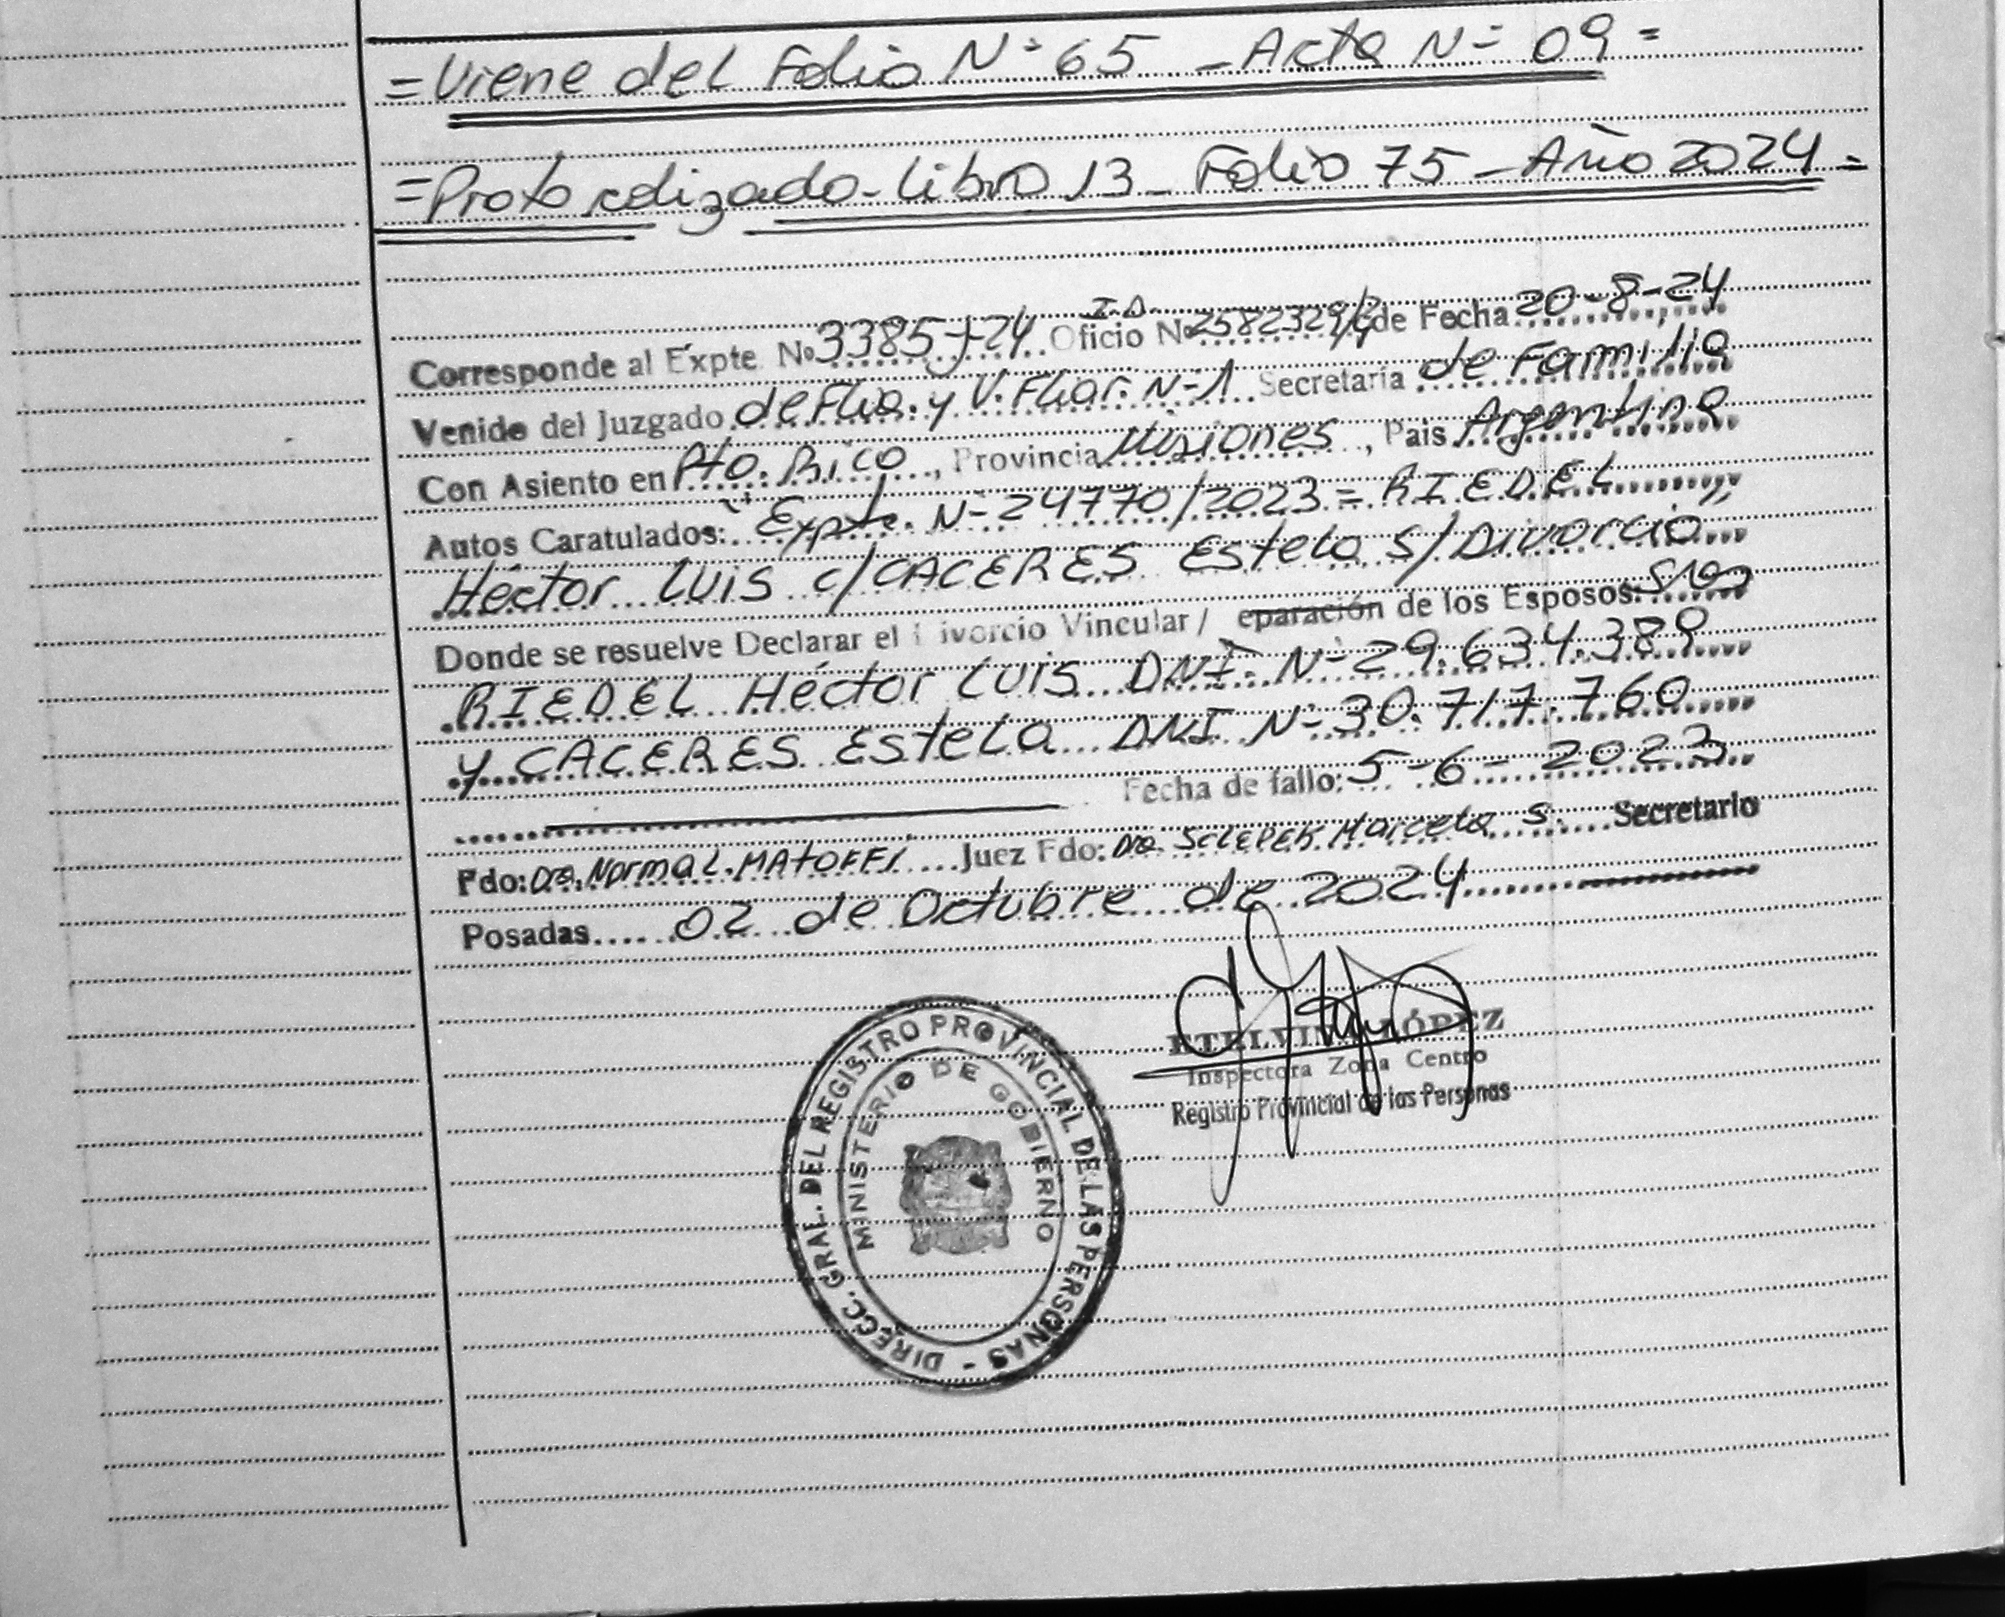 = Viene del Folio N° 65 - Acta N° 09 =
= Protocolizado - Libro 13 - Folio 75 - Año 2024 =
Corresponde al Expte. Nº 3385-J-24 I.D. Oficio Nº 25823296 de Fecha 20-8-24
Venido del Juzgado de Flia. y V. Fliar. N-1 Secretaría de Familia
Con Asiento en Pto. Rico, Provincia Misiones, Pais Argentina
Autos Caratulados: "Expte. N° 24770/2023 = RIEDEL
Héctor Luis c/ CACERES Estela S/ Divorcio"
Donde se resuelve Declarar el Divorcio Vincular / eparación de los Esposos:
RIEDEL Héctor Luis DNI. N° 29.634.389
y CACERES Estela DNI N° 30.717.760
Fecha de fallo: 5-6-2023
Fdo: Dra. Norma L. MATOFFI Juez Fdo: Dra. SCLEPEK Marcela S. Secretario
Posadas 02 de Octubre de 2024
ETELVINA LÓPEZ
Inspectora Zona Centro
Registro Provincial de las Personas
DIRECC. GRAL. DEL REGISTRO PROVINCIAL DE LAS PERSONAS -
MINISTERIO DE GOBIERNO